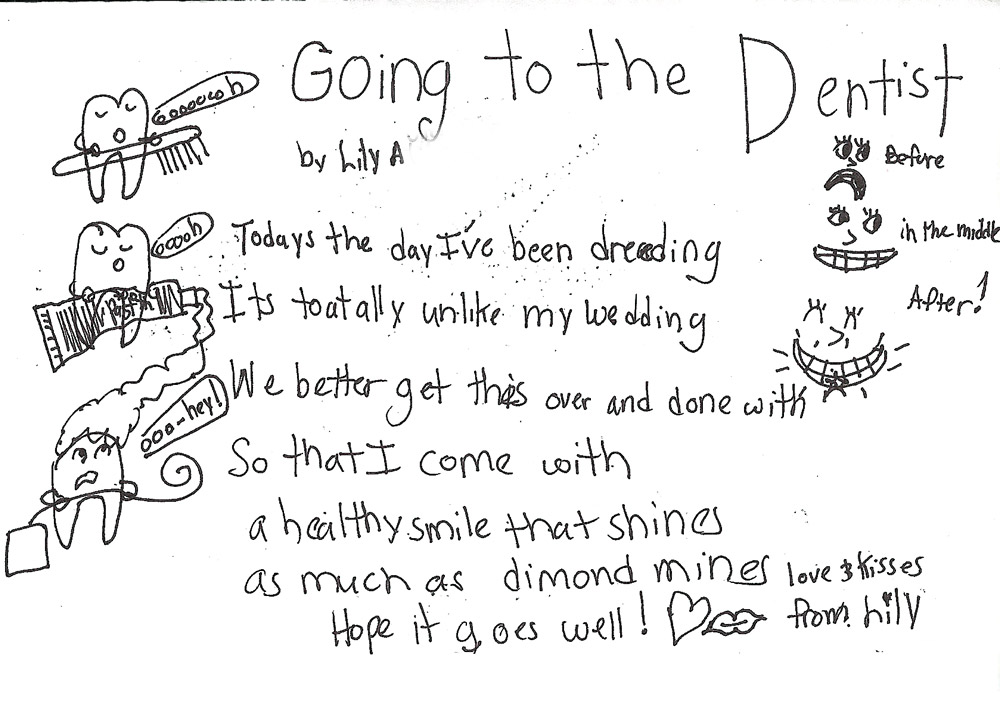 Going to the Dentist
by Lily A
oooooooh
Before
ooooh
in the middle
After!
Todays the day I've been dreading
Its toatally unlike my wedding
We better get this over and done with
ooo-hey!
So that I come with
a healthy smile that shines
as much as dimond mines
Hope it goes well!
love & kisses
from Lily